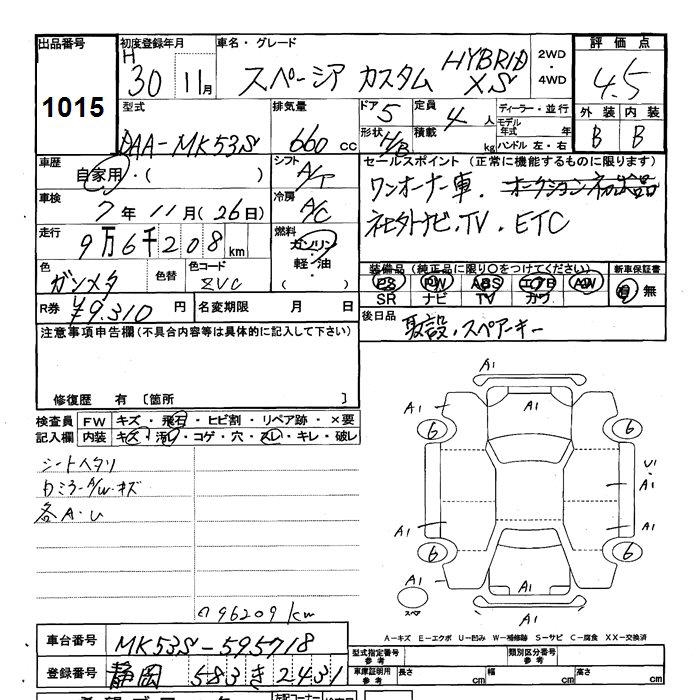 出品番号 初度登録年月 車名・グレード 2WD・4WD 評価点
1015 H 30 11月 スペーシア カスタム HYBRID XS 4.5
外装 内装
B B
型式 排気量 ドア 定員 ディーラー・並行
DAA-MK53S 660 cc 5 4 人 モデル年式 年
形状 H/B 積載 kg ハンドル 左・右
車歴 自家用・( ) シフト A/T
セールスポイント (正常に機能するものに限ります)
ワンオーナー車.
社外ナビ.TV.ETC
車検 7年 11月(26日) 冷房 A/C
走行 9万6千208km 燃料 ガソリン 軽・油
装備品(純正品に限り○をつけてください) 新車保証書
PS PW ABS エアB AW 有 無
SR ナビ TV カワ
色 ガンメタ 色替 色コード ZVC
R券 ¥9,310 円 名変期限 月 日
後日品 取説.スペアーキー
注意事項申告欄(不具合内容等は具体的に記入して下さい)
修復歴 有〔箇所 〕
検査員 FW キズ・飛石・ヒビ割・リペア跡・×要
記入欄 内装 キズ・汚れ・コゲ・穴・スレ・キレ・破レ
シートヘタリ
各A・U
96209km
A1
A1
A1 A1
6 6
U1
A1
A1 A1
6 6
A1 A1
スペア A1
A-キズ E-エクボ U-凹み W-補修跡 S-サビ C-腐食 XX-交換済
車台番号 MK53S-595718 型式指定番号 参考 類別区分番号 参考
登録番号 静岡 583 き 2431 車庫証明用 参考 長さ cm 幅 cm 高さ cm